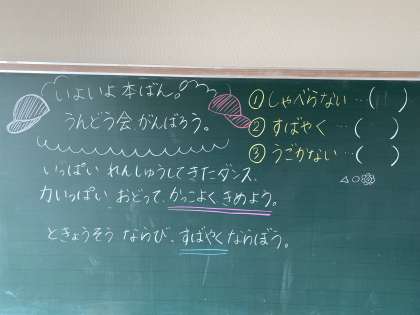 いよいよ本ばん。
うんどう会 がんばろう。
いっぱい れんしゅうしてきたダンス、
力いっぱい おどって、かっこよく きめよう。
ときょうそう ならび、すばやくならぼう。
① しゃべらない…（　）
② すばやく …（　）
③ うごかない…（　）
△○